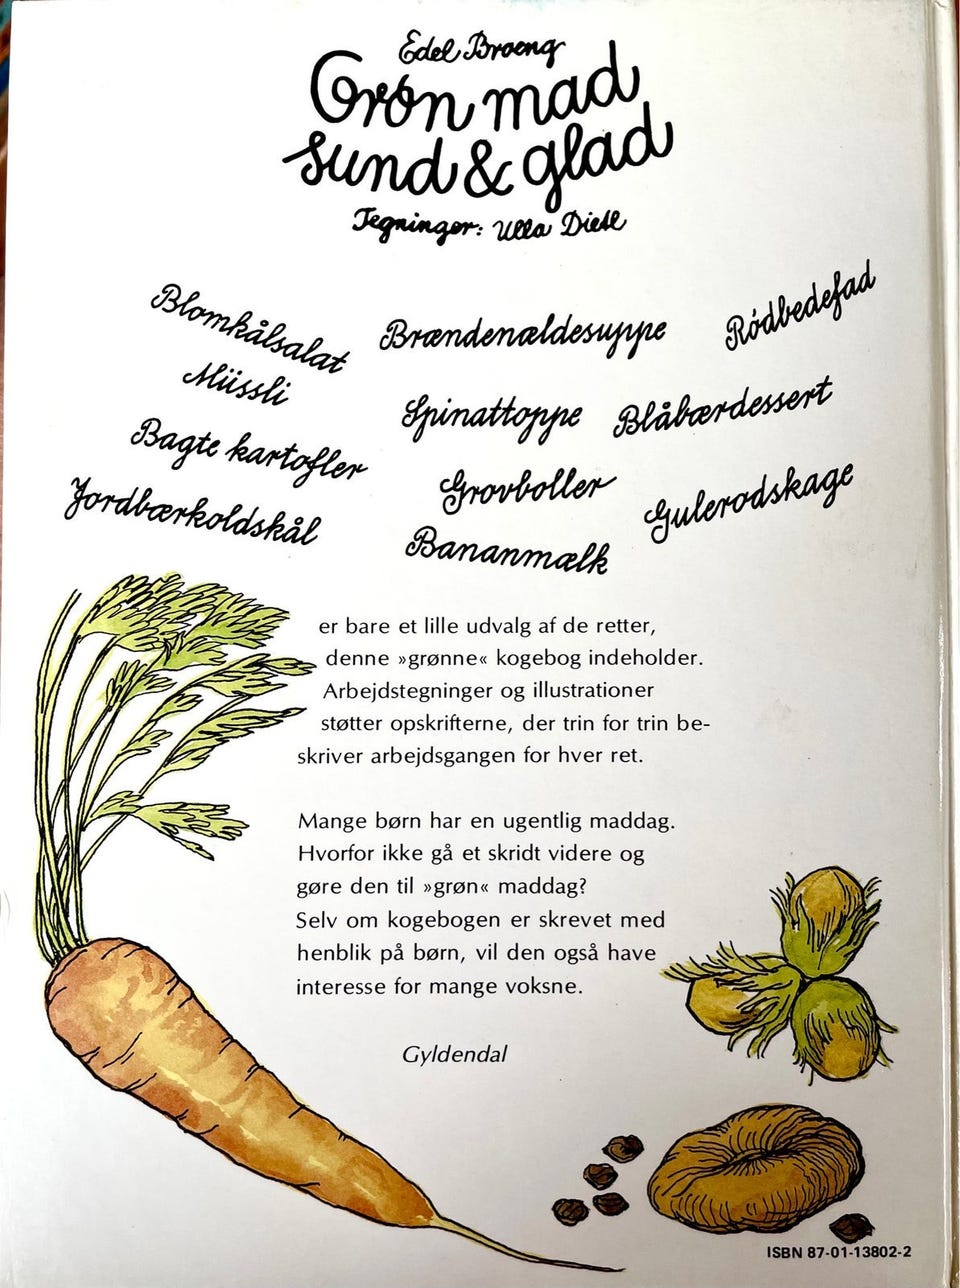 Edel Broeng
Grøn mad
sund & glad
Tegninger: Ulla Dietl
Blomkålsalat
Brændenældesuppe
Rödbedefad
Müssli
Spinattoppe
Blåbærdessert
Bagte kartofler
Grovboller
Gulerodskage
Jordbærkoldskål
Bananmælk
er bare et lille udvalg af de retter,
denne »grønne« kogebog indeholder.
Arbejdstegninger og illustrationer
støtter opskrifterne, der trin for trin be-
skriver arbejdsgangen for hver ret.
Mange børn har en ugentlig maddag.
Hvorfor ikke gå et skridt videre og
gøre den til »grøn« maddag?
Selv om kogebogen er skrevet med
henblik på børn, vil den også have
interesse for mange voksne.
Gyldendal
ISBN 87-01-13802-2